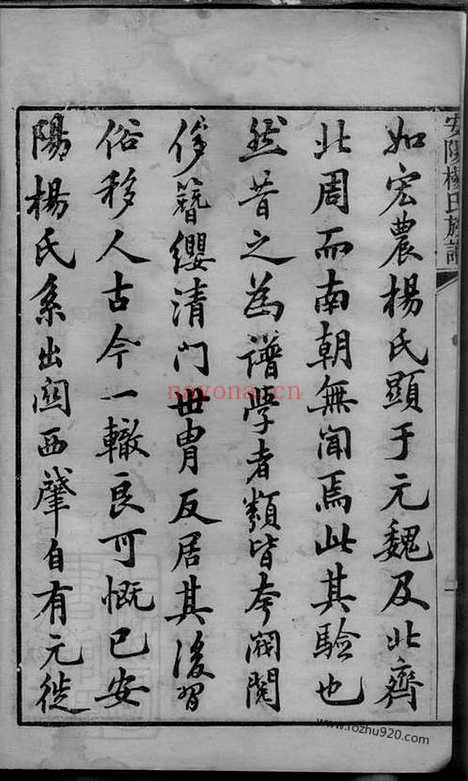 安陽楊氏族譜
如宏農楊氏顯于元魏及北齊
北周而南朝無聞焉此其驗也
然昔之為譜學者類皆夸閥閱
侈簪纓清門世胄反居其後習
俗移人古今一轍良可慨已安
陽楊氏系出關西肇自有元徙
nayona.cn
www.rozhu920.com